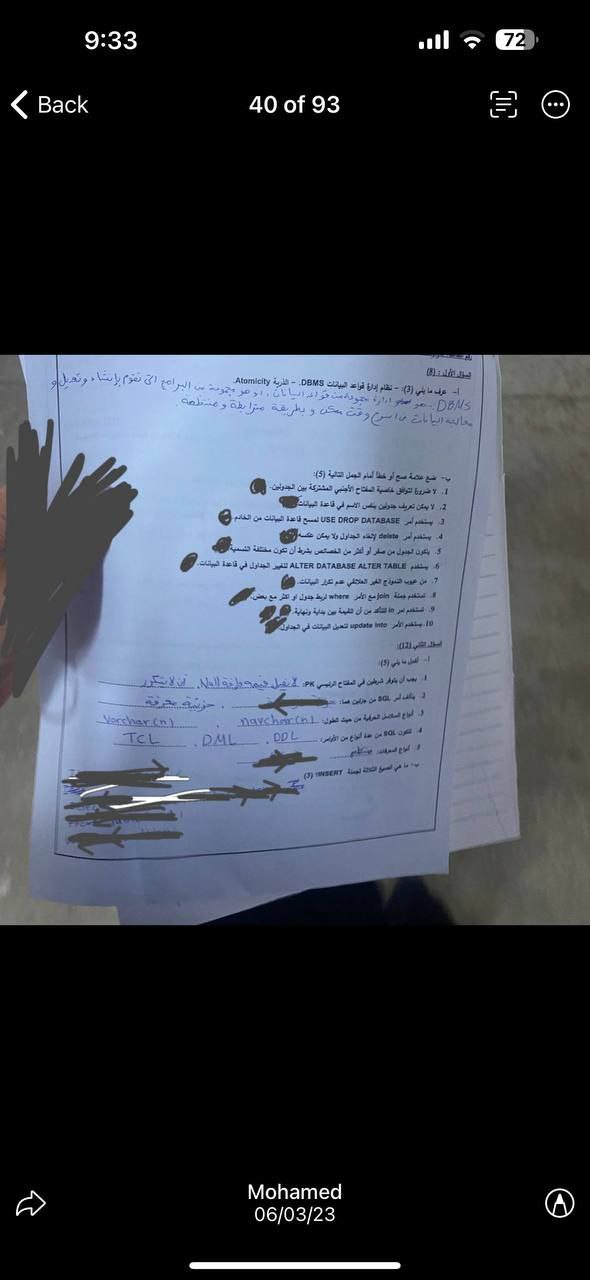 9:33
72
Back
40 of 93
السؤال الأول: (8)
أ- عرف ما يلي (3): – نظام إدارة قواعد البيانات DBMS. – الذرية Atomicity.
DBMS: هو ادارة مجموعة من قواعد البيانات، او هو مجموعة من البرامج التي تقوم بإنشاء وتعديل و
معالجة البيانات في اسرع وقت ممكن و بطريقة مترابطة و منتظمة
ب- ضع علامة صح أو خطأ أمام الجمل التالية (5):
1. لا ضرورة لتوافق خاصية المفتاح الأجنبي المشتركة بين الجدولين.
2. لا يمكن تعريف جدولين بنفس الاسم في قاعدة البيانات
3. يستخدم أمر USE DROP DATABASE لمسح قاعدة البيانات من الخادم.
4. يستخدم أمر delete لإلغاء الجداول ولا يمكن عكسه
5. يتكون الجدول من صفر أو أكثر من الخصائص بشرط أن تكون مختلفة التسمية
6. يستخدم ALTER DATABASE ALTER TABLE لتغيير الجداول في قاعدة البيانات.
7. من عيوب النموذج الغير العلائقي عدم تكرار البيانات.
8. تستخدم جملة join مع الأمر where لربط جدول او اكثر مع بعض.
9. نستخدم امر in للتأكد من أن القيمة بين بداية ونهاية
10. يستخدم الأمر update into لتعديل البيانات في الجداول
السؤال الثاني (12):
أ- أكمل ما يلي (5):
1. يجب أن يتوفر شرطين في المفتاح الرئيسي PK: لا يقبل قيمة فارغة Null، أن لا يتكرر
2. يتألف أمر SQL من جزئين هما: ، جزئية معرفة
3. أنواع السلاسل الحرفية من حيث الطول: navchar(n) . Varchar(n)
4. تتكون SQL من عدة أنواع من الأوامر: DDL . DML . TCL
5. أنواع المعرفات:
ب- ما هي الصيغ الثلاثة لجملة INSERT؟ (3)
Mohamed
06/03/23